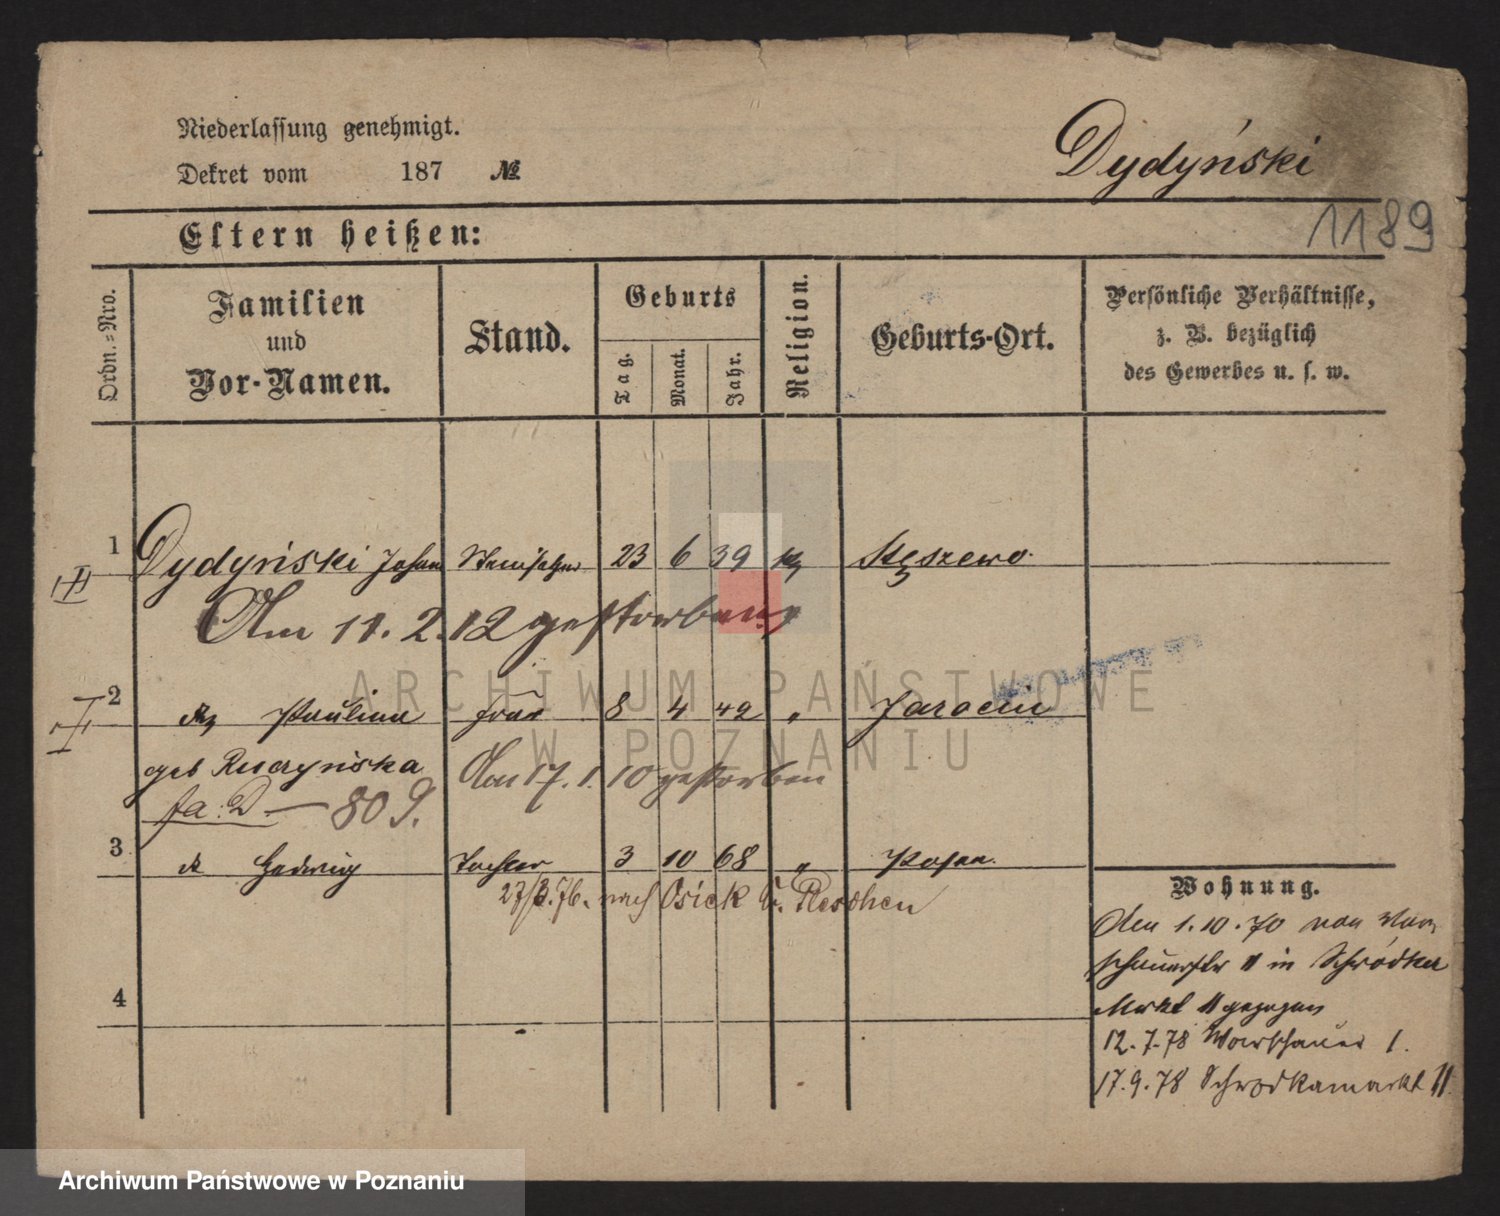 Niederlassung genehmigt.
Dekret vom 187 №
Dydyński
1189
Eltern heißen:
Ordn.-Nro.
Familien
und
Vor-Namen.
Stand.
Geburts
Tag.
Monat.
Jahr.
Religion.
Geburts-Ort.
Persönliche Verhältnisse,
z. B. bezüglich
des Gewerbes u. s. w.
1 Dydyński Johan 23 6 39 Stęszewo
Am 11. 2. 12 gestorben
ARCHIWUM PAŃSTWOWE
W POZNANIU
2 Paulina Frau 8 4 42 " Jarocin
geb Ruczyńska
Am 17. 1. 10 gestorben
80 9.
3 Hedwig Tochter 3 10 68 " Posen
27/3. 76. nach Osiek b. Pleschen
4
Wohnung.
Am 1. 10. 70 von War
schauerstr 11 in Schrodka
Markt 11 gezogen
12. 7. 78 Warschauer 1.
17. 9. 78 Schrodkamarkt 11
Archiwum Państwowe w Poznaniu